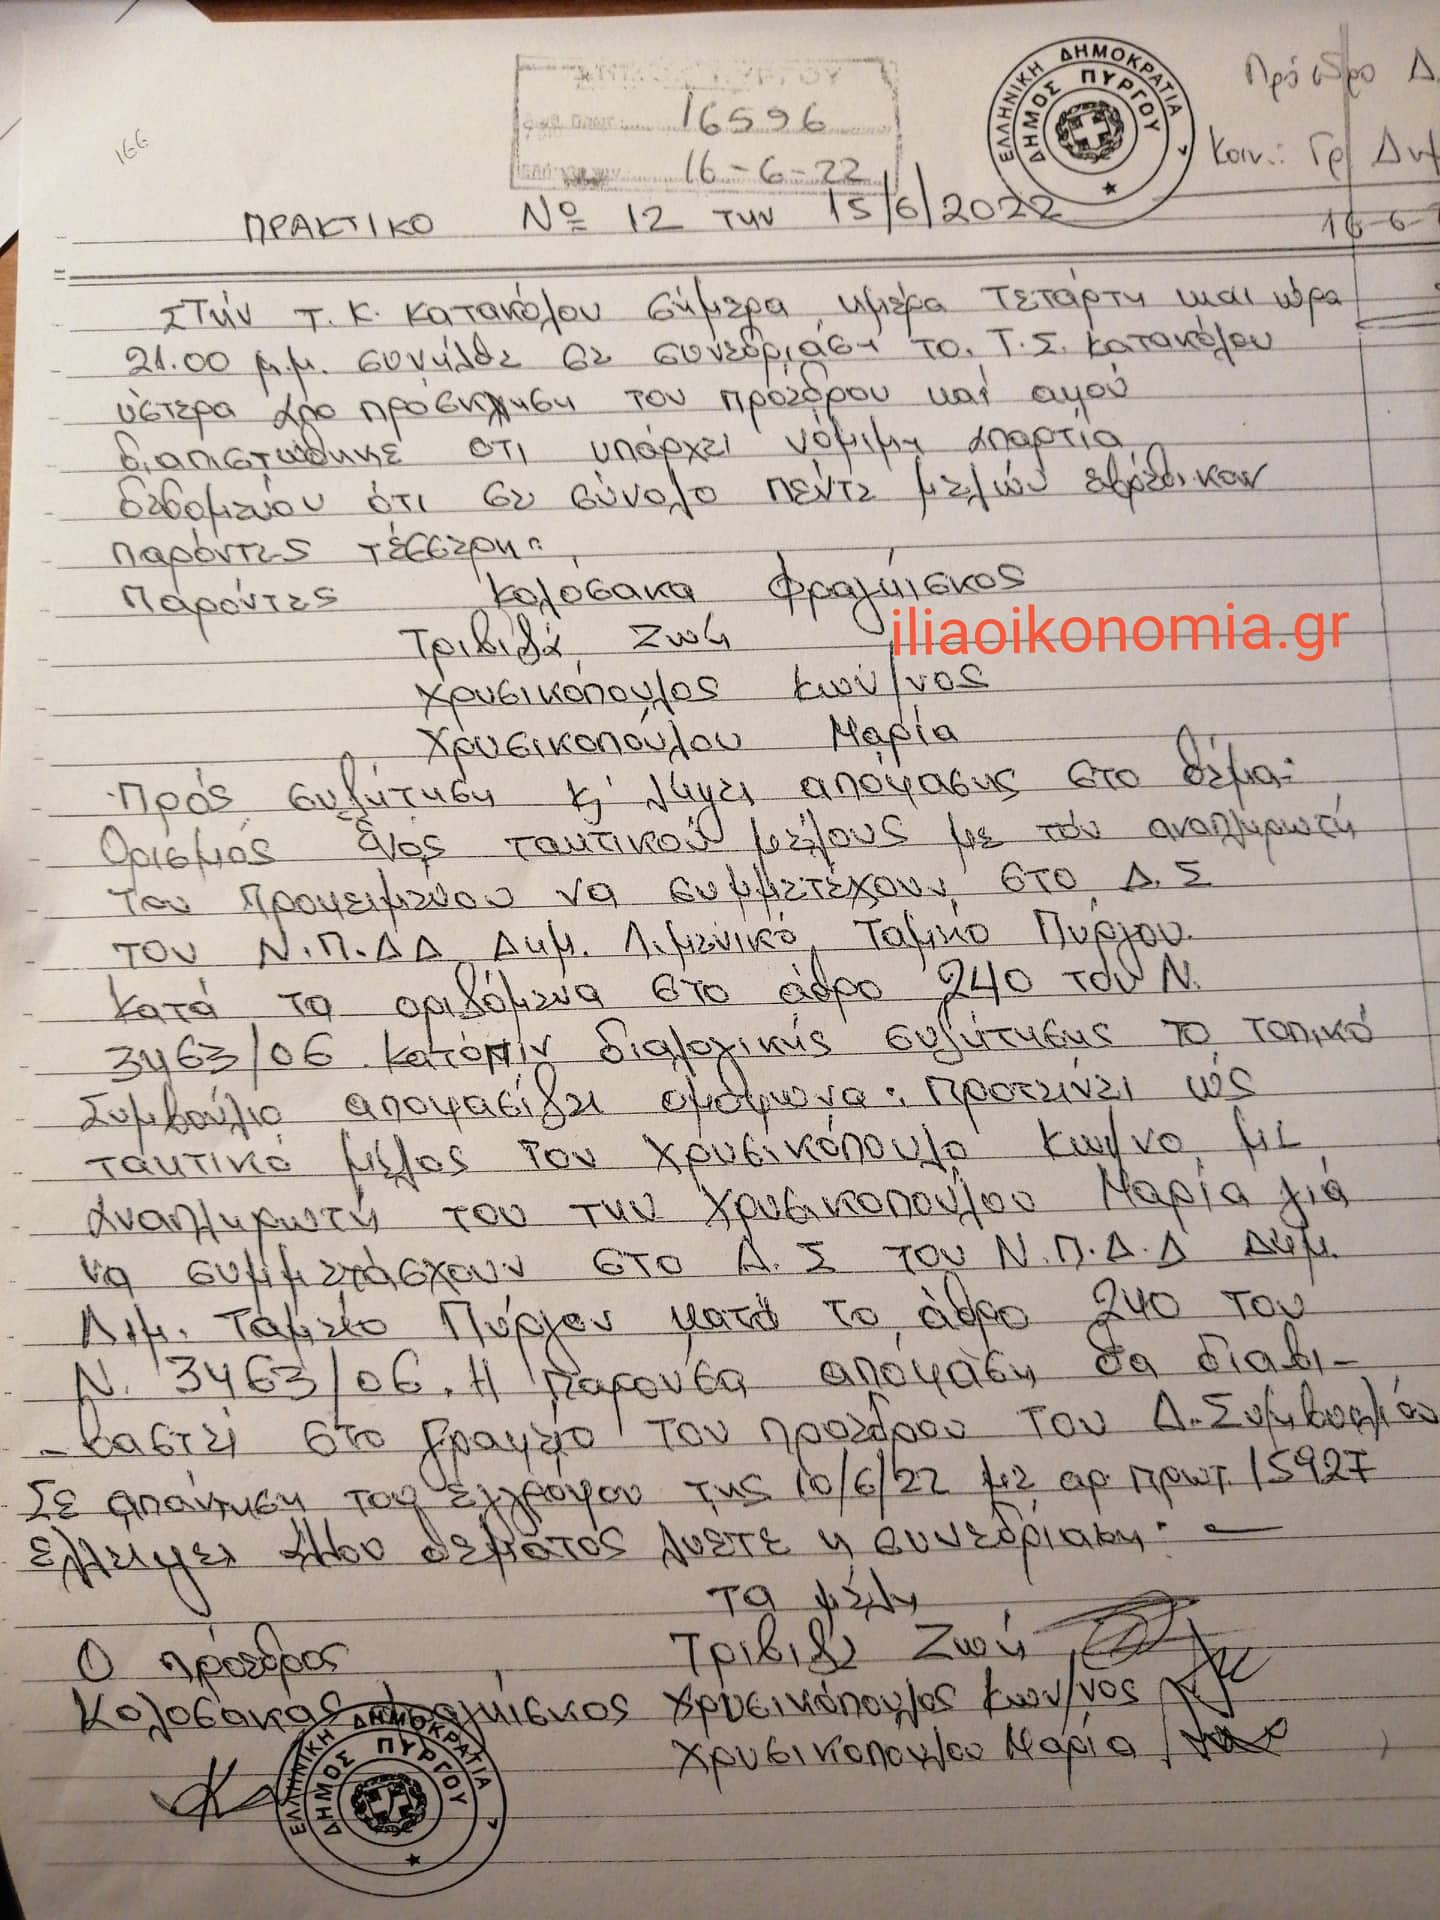 166
16596
16-6-22
ΕΛΛΗΝΙΚΗ ΔΗΜΟΚΡΑΤΙΑ
ΔΗΜΟΣ ΠΥΡΓΟΥ
Πρόεδρο Δ.
Κοιν.: Γρ Δημ
16-6-
ΠΡΑΚΤΙΚΟ Νο 12 την 15/6/2022
Στην Τ.Κ. Κατακόλου σήμερα ημέρα Τετάρτη και ώρα
21.00 μ.μ. συνήλθε σε συνεδρίαση το Τ.Σ. Κατακόλου
ύστερα από πρόσκληση του προέδρου και αφού
διαπιστώθηκε ότι υπάρχει νόμιμη απαρτία
δεδομένου ότι σε σύνολο πέντε μελών ευρέθικαν
παρόντες τέσσερη:
Παρόντες Κολόσακα Φραγκίσκος
Τριβιζά Ζωή
Χρυσικόπουλος Κων/νος
Χρυσικοπούλου Μαρία
iliaoikonomia.gr
Πρός συζήτηση κ' λήψει απόφασης στο θέμα:
Ορισμός ενός τακτικού μέλους με τόν αναπληρωτή
του προκειμένου να συμμετέχουν στο Δ.Σ
του Ν.Π.ΔΔ Δημ. Λιμενικό Ταμείο Πύργου.
Κατά τα οριζόμενα στο άθρο 240 του Ν.
3463/06. Κατόπιν διαλογικής συζήτησης το τοπικό
Συμβούλιο αποφασίζει ομόφωνα: Προτείνει ως
τακτικό μέλος τον Χρυσικόπουλο Κων/νο με
αναπληρωτή του την Χρυσικοπούλου Μαρία γιά
να συμμετάσχουν στο Δ.Σ του Ν.Π.Δ.Δ Δημ.
Λιμ. Ταμείο Πύργου κατά το άθρο 240 του
Ν. 3463/06. Η παρούσα απόφαση θα διαβι-
-βαστεί στο γραφείο του προέδρου του Δ.Συμβουλίου
Σε απάντηση του εγγράφου της 10/6/22 με αρ. πρωτ. 15927
Ελλείψει άλλου θέματος λύετε η συνεδρίαση:
Τα μέλη
Ο πρόεδρος
Τριβιζά Ζωή
Κολοσακας Φραγκίσκος
Χρυσικόπουλος Κων/νος
Χρυσικοπούλου Μαρία
ΕΛΛΗΝΙΚΗ ΔΗΜΟΚΡΑΤΙΑ
ΔΗΜΟΣ ΠΥΡΓΟΥ